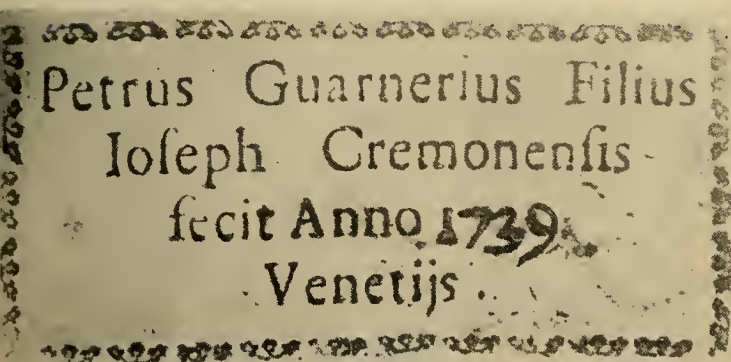 Petrus Guarnerius Filius
Ioſeph Cremonenſis
fecit Anno 1739
Venetijs